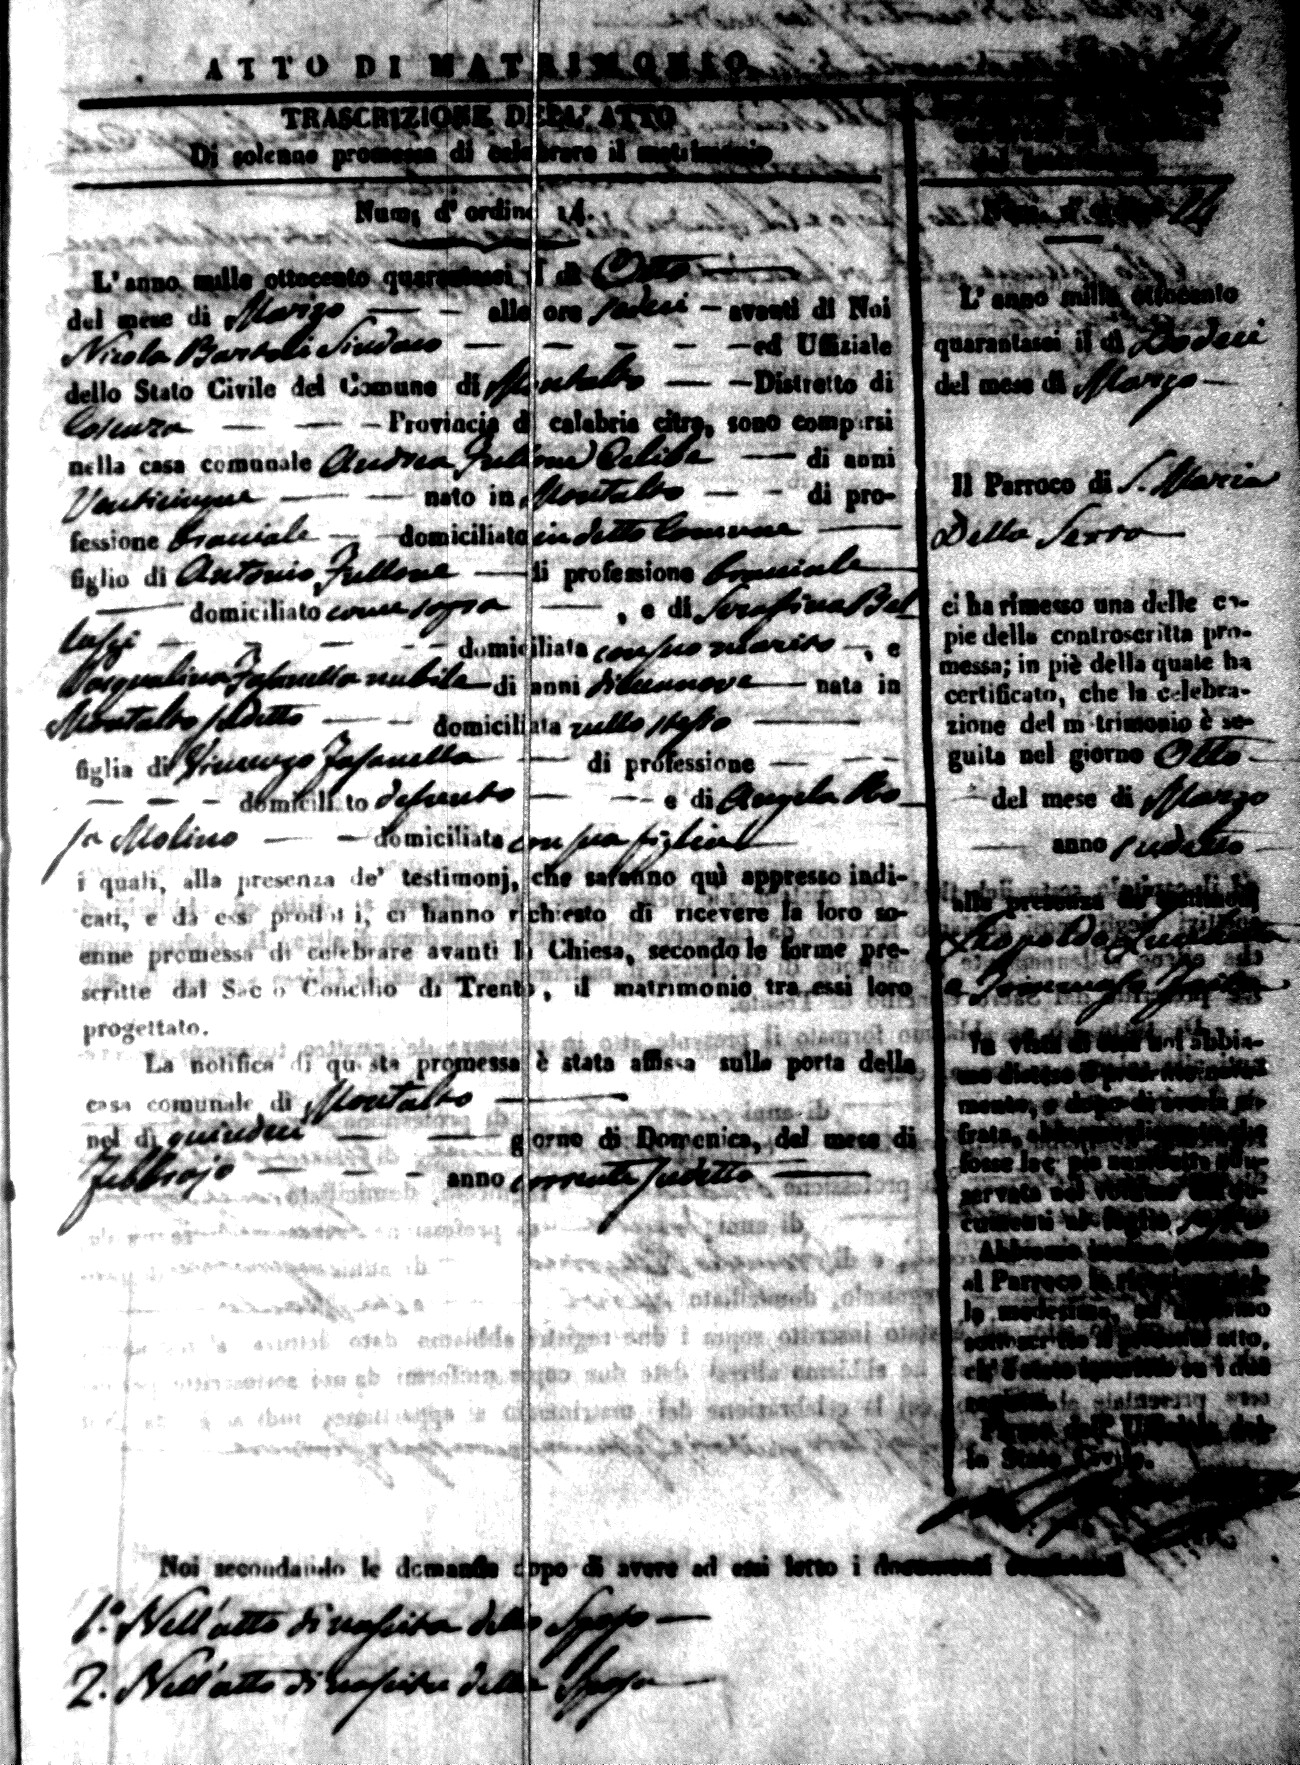 ATTO DI MATRIMONIO
TRASCRIZIONE DELL' ATTO
Di solenne promessa di celebrare il matrimonio
Num. d' ordine 14.
L' anno mille ottocento quarantasei il di Otto
del mese di Marzo — alle ore sedeci — avanti di Noi
Nicola Bartoli Sindaco — ed Uffiziale
dello Stato Civile del Comune di Montalto — Distretto di
Cosenza — Provincia di calabria citra, sono comparsi
nella casa comunale Andrea Fullone Celibe — di anni
Venticinque — nato in Montalto — di pro-
fessione bracciale — domiciliato in detto Comune
figlio di Antonio Fullone — di professione bracciale
— domiciliato come sopra —, e di Serafina Bel
lussi — domiciliata con suo marito —, e
Pasqualina Fasanella nubile di anni dicianove — nata in
Montalto sudetto — domiciliata nello stesso
figlia di Vincenzo Fasanella — di professione —
— domiciliato defunto — e di Angela Ro
sa Molino — domiciliata con sua figlia
i quali, alla presenza de' testimonj, che saranno quì appresso indi-
cati, e da essi prodotti, ci hanno richiesto di ricevere la loro so-
enne promessa di celebrare avanti la Chiesa, secondo le forme pre-
scritte dal Sacro Concilio di Trento, il matrimonio tra essi loro
progettato.
La notifica di questa promessa è stata affissa sulla porta della
casa comunale di Montalto
nel di quindeci — giorno di Domenica, del mese di
Febbrajo — anno corrente sudetto
Noi secondando le domande dopo di avere ad essi letto i documenti consistenti
1.° Nell'atto di nascita dello Sposo
2. Nell'atto di nascita della Sposa
del matrimonio
Num. d' ordine 14
L' anno mille ottocento
quarantasei il di Dodeci
del mese di Marzo
Il Parroco di S. Maria
Della Serra
ci ha rimesso una delle co-
pie della controscritta pro-
messa; in piè della quale ha
certificato, che la celebra-
zione del matrimonio è se-
guita nel giorno Otto
— del mese di Marzo
— anno sudetto
alla presenza de' testimonj
Leopoldo
e Tommaso
In vista di essa noi abbia-
mo disteso il presente notа-
mento, e dopo di averla ci-
frata, abbiamo disposto che
fosse la copia anzidetta con-
servata nel volume dei do-
cumenti al foglio
Abbiamo inoltre accusato
al Parroco la ricezione del-
la medesima, ed abbiamo
sottoscritto il presente atto,
ch' è stato inscritto su i due
registri.
Firma dell' Uffiziale del-
lo Stato Civile.